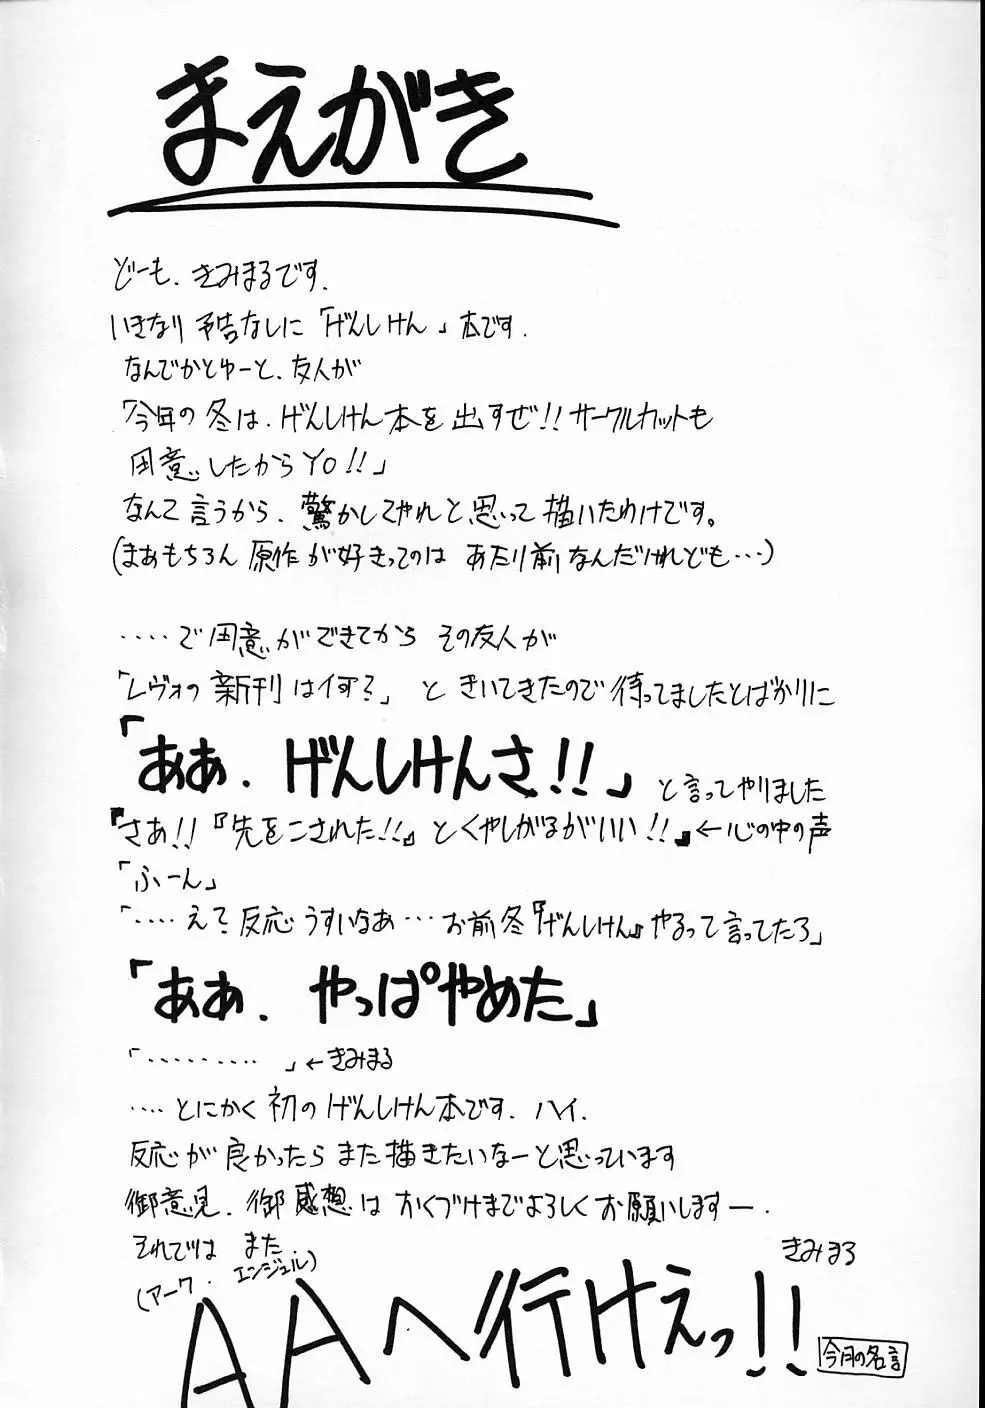 まえがき
どーも、きみまるです。
いきなり予告なしに「げんしけん」本です。
なんでかとゆーと、友人が
「今年の冬は、げんしけん本を出すぜ!!サークルカットも
用意したからYO!!」
なんて言うから、驚かしてやれと思って描いたわけです。
(まあもちろん原作が好きってのはあたり前なんだけれども…)
‥‥で用意ができてから その友人が
「レヴォの新刊は何?」ときいてきたので待ってましたとばかりに
「ああ、げんしけんさ!!」と言ってやりました
『さあ!!『先をこされた!!』とくやしがるがいい!!』←心の中の声
「ふーん」
「‥‥えて?反応うすいなあ…お前冬『げんしけん』やるって言ってたろ」
「ああ、やっぱやめた」
「‥‥‥‥‥」←きみまる
‥‥とにかく初のげんしけん本です。ハイ。
反応が良かったらまた描きたいなーと思っています
御意見、御感想はかくづけまでよろしくお願いしますー。
それではまた
きみまる
(アーク・エンジェル)
AAへ行けぇっ!!
今月の名言